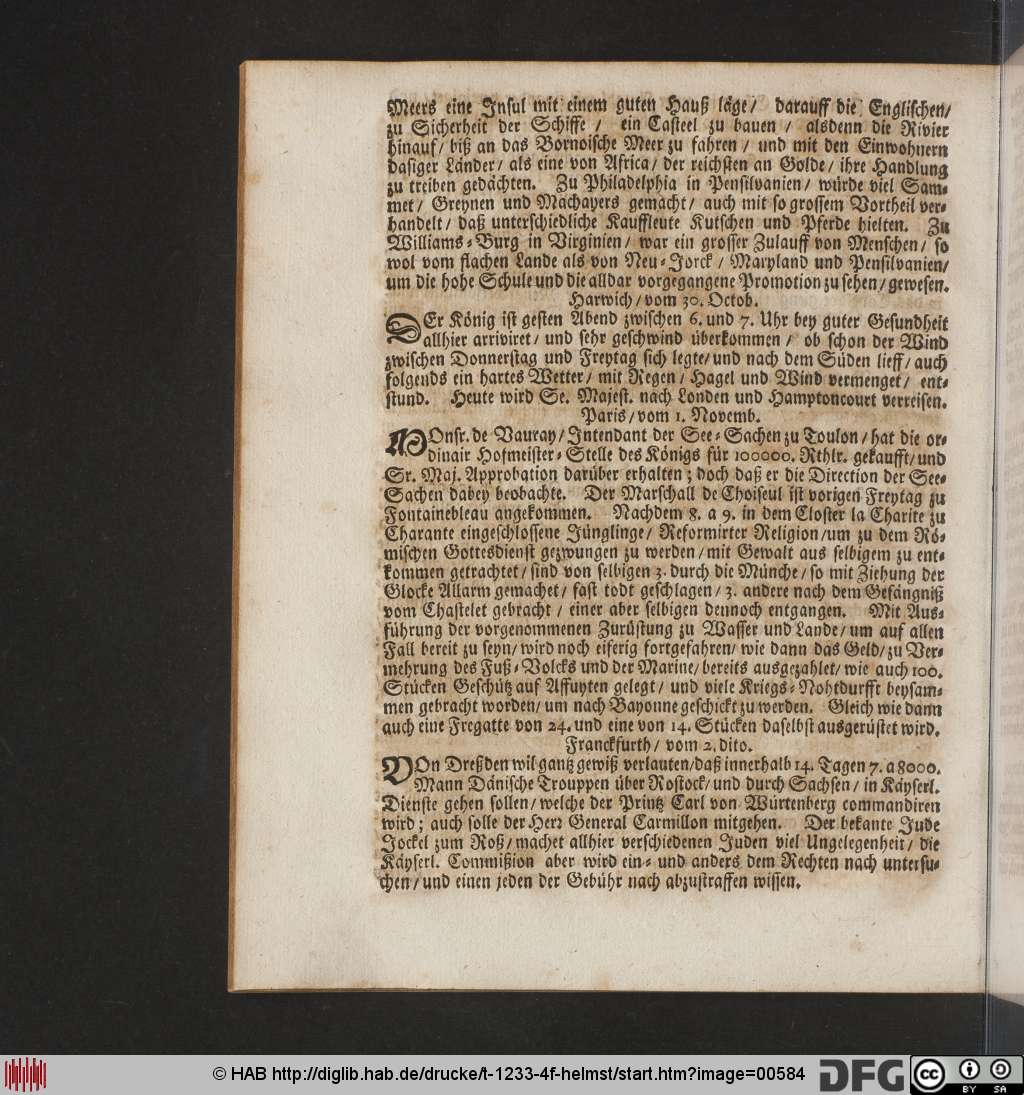 Meers eine Insul mit einem guten Hauß läge/ darauff die Englischen/
zu Sicherheit der Schiffe / ein Casteel zu bauen / alsdenn die Rivier
hinauf/ biß an das Bornoische Meer zu fahren / und mit den Einwohnern
dasiger Länder/ als eine von Africa/ der reichsten an Golde/ ihre Handlung
zu treiben gedächten. Zu Philadelphia in Pensilvanien/ würde viel Sam-
met/ Greynen und Machayers gemacht/ auch mit so grossem Vortheil ver-
handelt/ daß unterschiedliche Kauffleute Kutschen und Pferde hielten. Zu
Williams-Burg in Virginien/ war ein grosser Zulauff von Menschen/ so
wol vom flachen Lande als von Neu-Jorck / Maryland und Pensilvanien/
um die hohe Schule und die alldar vorgegangene Promotion zu sehen/ gewesen.
Harwich/ vom 30. Octob.
DEr König ist gesten Abend zwischen 6. und 7. Uhr bey guter Gesundheit
allhier arriviret/ und sehr geschwind überkommen / ob schon der Wind
zwischen Donnerstag und Freytag sich legte/ und nach dem Süden lieff/ auch
folgends ein hartes Wetter/ mit Regen/ Hagel und Wind vermenget/ ent-
stund. Heute wird Se. Majest. nach Londen und Hamptoncourt verreisen.
Paris/ vom 1. Novemb.
MOnsr. de Vauray/ Intendant der See-Sachen zu Toulon/ hat die or-
dinair Hofmeister-Stelle des Königs für 100000. Rthlr. gekaufft/ und
Sr. Maj. Approbation darüber erhalten; doch daß er die Direction der See-
Sachen dabey beobachte. Der Marschall de Choiseul ist vorigen Freytag zu
Fontainebleau angekommen. Nachdem 8. a 9. in dem Closter la Charite zu
Charante eingeschlossene Jünglinge/ Reformirter Religion/ um zu dem Rö-
mischen Gottesdienst gezwungen zu werden/ mit Gewalt aus selbigem zu ent-
kommen getrachtet/ sind von selbigen 3. durch die Münche/ so mit Ziehung der
Glocke Allarm gemachet/ fast todt geschlagen/ 3. andere nach dem Gefängniß
vom Chastelet gebracht / einer aber selbigen dennoch entgangen. Mit Aus-
führung der vorgenommenen Zurüstung zu Wasser und Lande/ um auf allen
Fall bereit zu seyn/ wird noch eiferig fortgefahren/ wie dann das Geld/ zu Ver-
mehrung des Fuß-Volcks und der Marine/ bereits ausgezahlet/ wie auch 100.
Stücken Geschütz auf Affuyten gelegt/ und viele Kriegs-Nohtdurfft beysam-
men gebracht worden/ um nach Bayonne geschickt zu werden. Gleich wie dann
auch eine Fregatte von 24. und eine von 14. Stücken daselbst ausgerüstet wird.
Franckfurth/ vom 2. dito.
VOn Dreßden wil gantz gewiß verlauten/ daß innerhalb 14. Tagen 7. a 8000.
Mann Dänische Trouppen über Rostock/ und durch Sachsen/ in Käyserl.
Dienste gehen sollen/ welche der Printz Carl von Würtenberg commandiren
wird; auch solle der Herr General Carmillon mitgehen. Der bekante Jude
Jockel zum Roß/ machet allhier verschiedenen Juden viel Ungelegenheit/ die
Käyserl. Commißion aber wird ein- und anders dem Rechten nach untersu-
chen/ und einen jeden der Gebühr nach abzustraffen wissen.
© HAB http://diglib.hab.de/drucke/t-1233-4f-helmst/start.htm?image=00584
DFG
cc BY SA